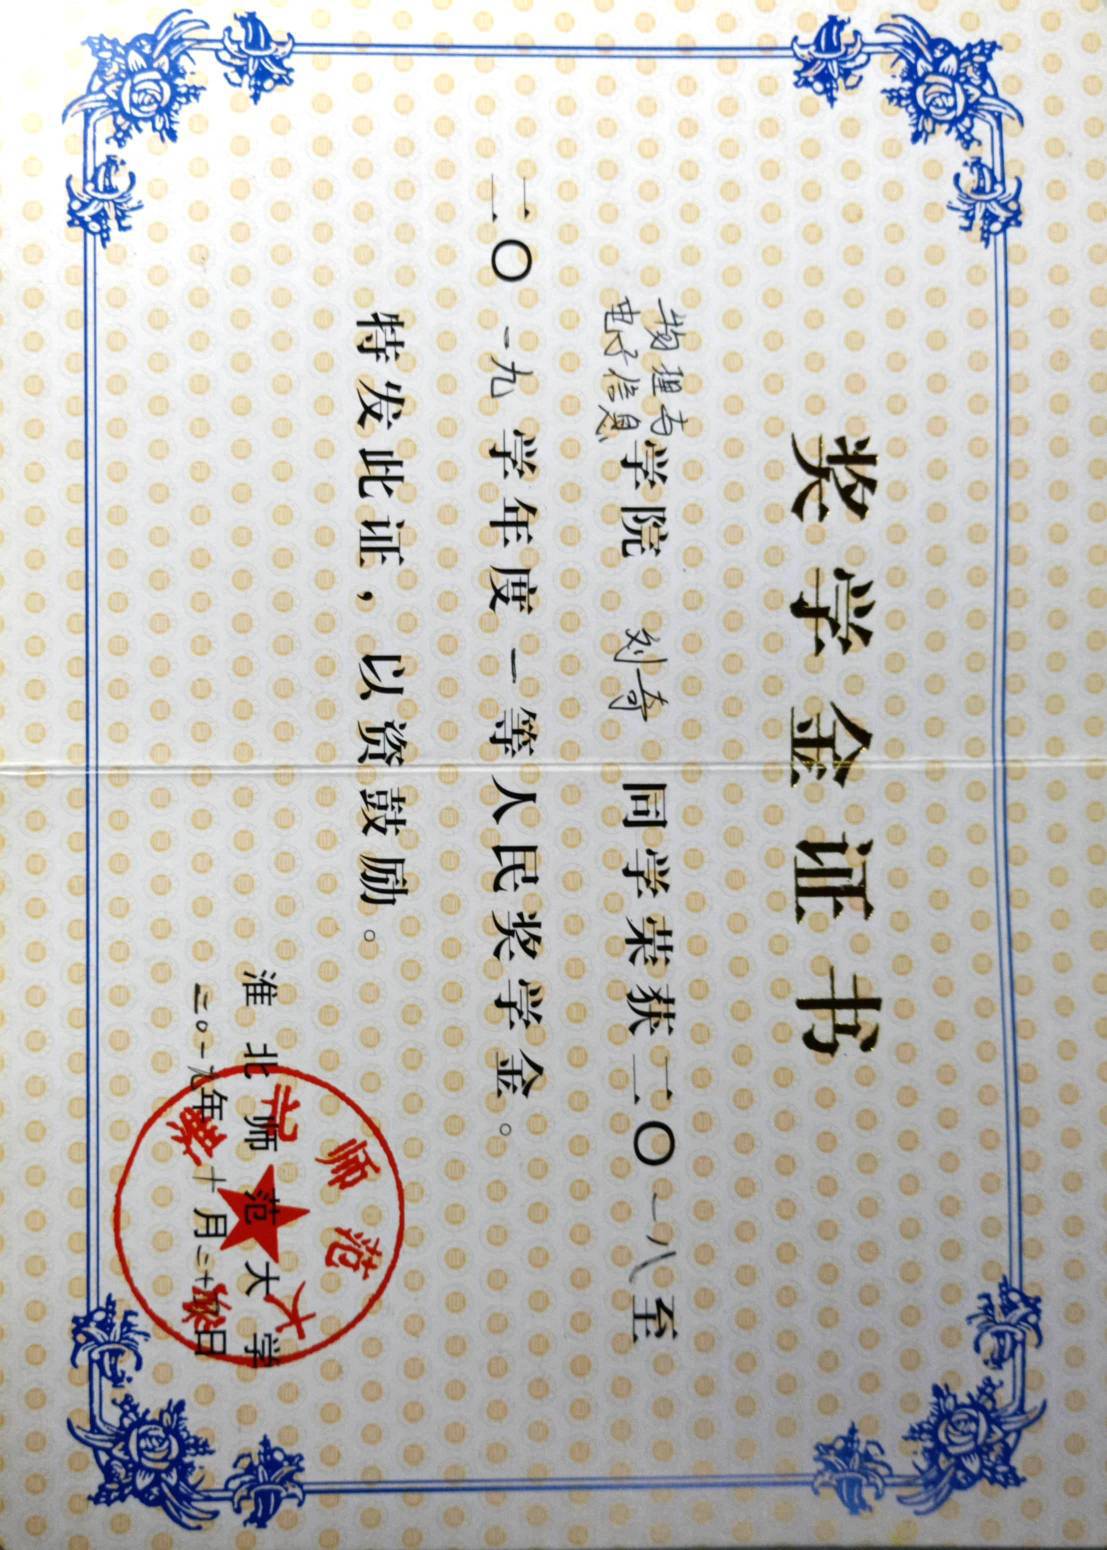 奖学金证书
物理与
电子信息学院 刘奇 同学荣获二〇一八至
二〇一九学年度一等人民奖学金。
特发此证，以资鼓励。
淮北师范大学
二〇一九年十月二十四日
淮北师范大学